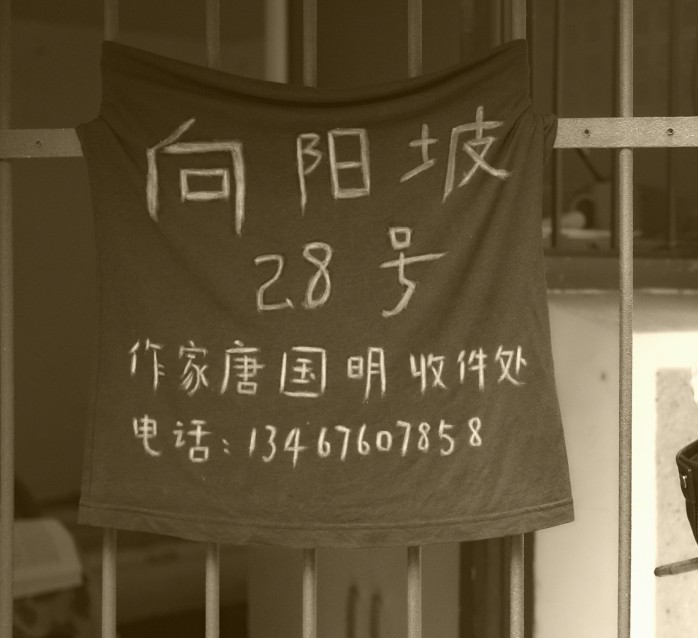 向阳坡
28号
作家唐国明收件处
电话:13467607858